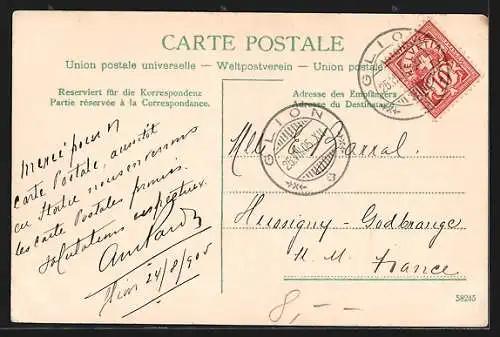 CARTE POSTALE
Union postale universelle — Weltpostverein — Union postale
Reserviert für die Korrespondenz
Partie réservée à la Correspondance.
Adresse des Empfängers
Adresse du Destinataire
HELVETIA
10
GLION
GLION
Merci pour
carte Postale, aussitôt
nous enverrons
les carte Postales promis.
salutations respectueux
24/8/905
Mlle
Hussigny-Godbrange
M. M.
France
8,—
58245